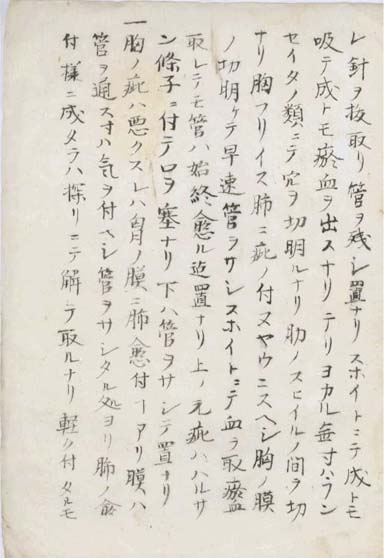 レ針ヲ抜取リ管ヲ残シ置ナリスホイトニテ成トモ
吸テ成トモ瘀血ヲ出スナリテリヨカル無寸ハフン
セイタノ類ニテ穴ヲ切明ルナリ肋ノスヒイルノ間ヲ切
ナリ胸フリイス肺ニ疵ノ付ヌヤウニスヘシ胸ノ膜
ノ切明ケテ早速管ヲサシスホイトニテ血ヲ取瘀血
取レテモ管ハ始終愈ル迠置ナリ上ノ元疵ハハルサ
ン條子ニ付テ口ヲ塞ナリ下ハ管ヲサシテ置ナリ
一胸ノ疵ハ悪クスレハ胸ノ膜ニ肺愈付ーアリ膜ハ
管ヲ通ス寸ハ気ヲ付ヘシ管ヲサシタル処ヨリ肺ノ愈
付様ニ成タラハ探リニテ解テ取ルナリ軽ク付タルモ